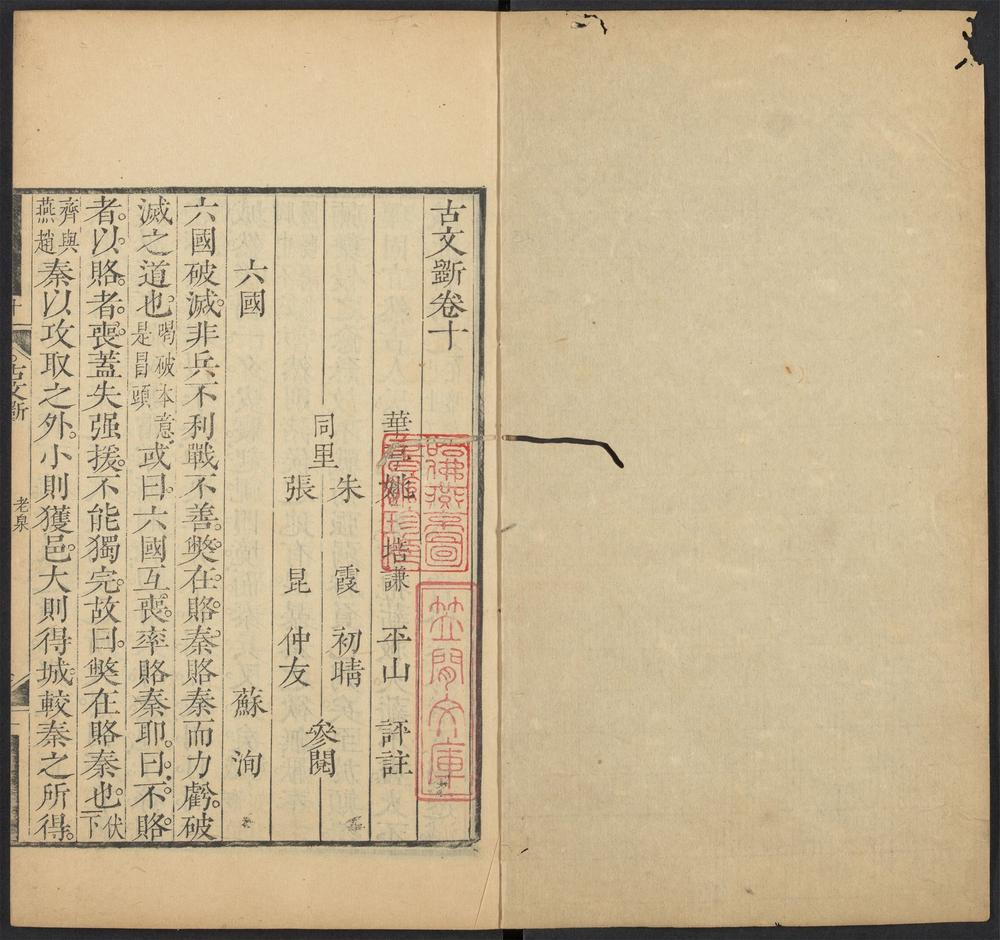 古文斵卷十
華亭姚培謙平山評註
同里
朱霞初晴
張昆仲友
參閱
六國
蘇洵
六國破滅。非兵不利戰不善。獘在。賂。秦。賂秦而力虧。破
滅之道也。喝破本意。是冒頭或曰。六國互。喪。率賂秦耶。曰。不。賂。
者。以。賂。者。喪。蓋失强援。不能獨完。故曰。獘在賂秦也。伏下
齊與燕趙秦以攻取之外。小則獲邑。大則得城。較秦之所得。
古文斵
老泉
笠閒文庫